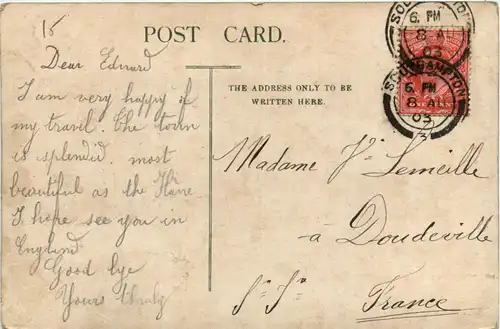 15
POST CARD.
Dear Edward
I am very happy of
my travel. The town
is splendid. most
beautiful as the Havre
I hope see you in
England
Good bye
Yours truly
THE ADDRESS ONLY TO BE
WRITTEN HERE.
SOUTHAMPTON
6. PM
8 A
03
SOUTHAMPTON
6. PM
8 A
03
Madame Vve Lemeille
à Doudeville
France